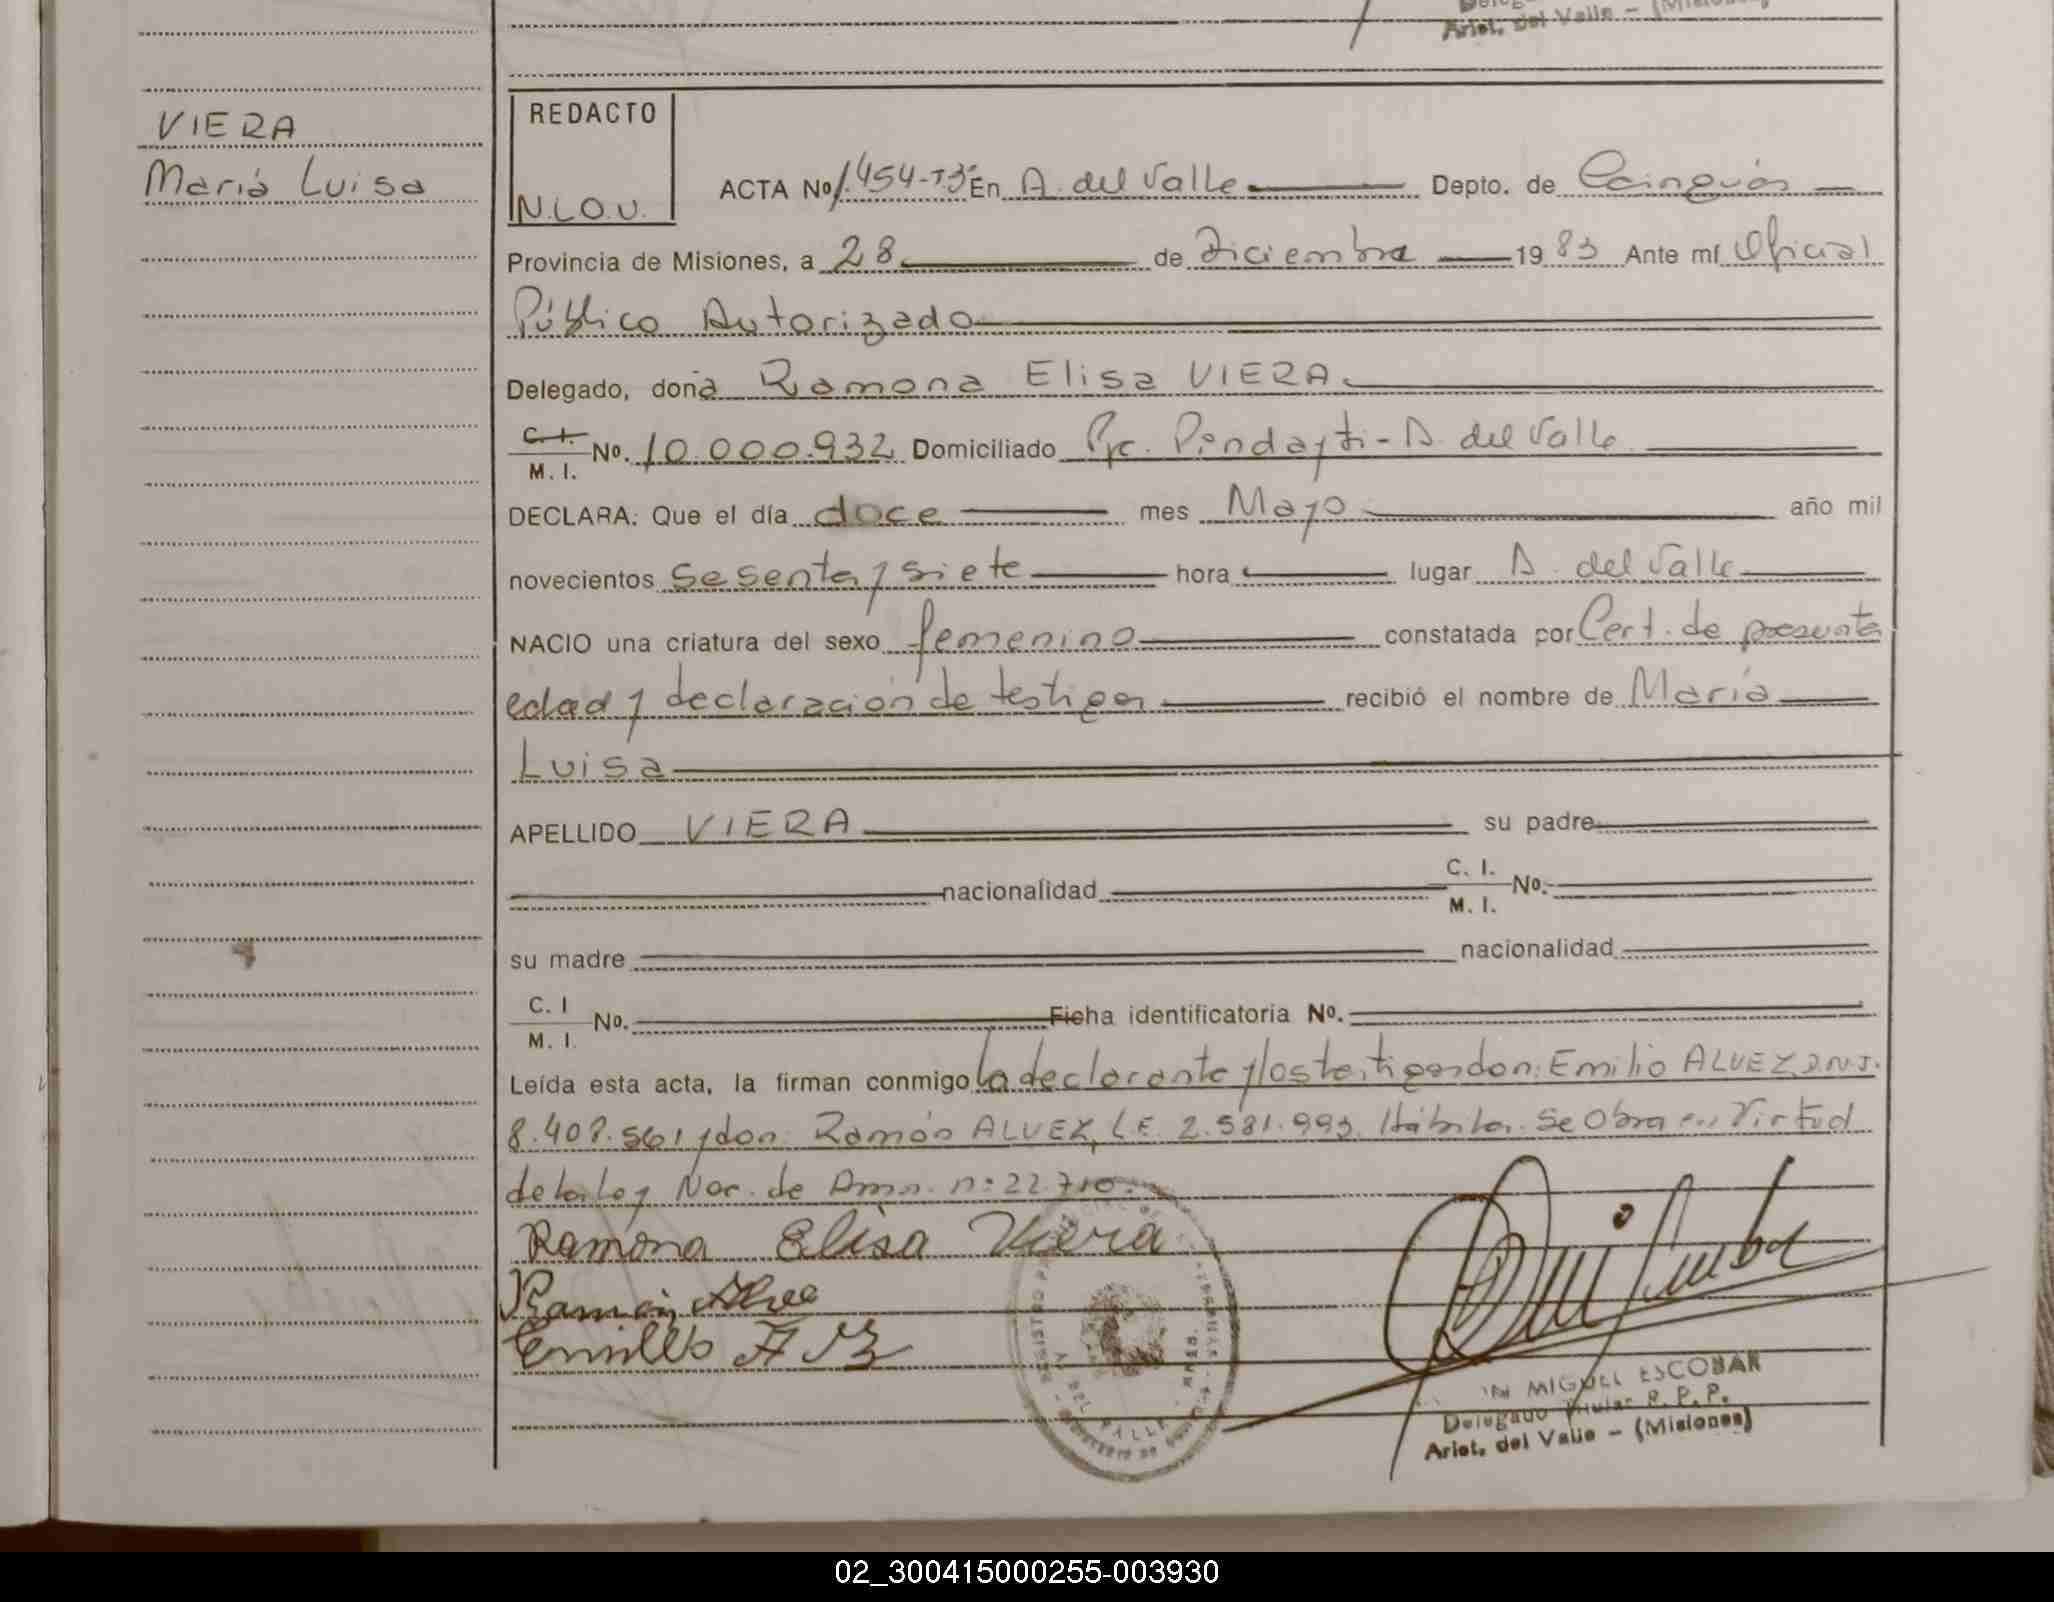 Arist. del Valle - (Misiones)
VIERA
María Luisa
REDACTO
N.L.O.U.
ACTA Nº 1.454-T3º En A. del Valle Depto. de Cainguás
Provincia de Misiones, a 28 de Diciembre 1983 Ante mí Oficial
Público Autorizado
Delegado, doña Ramona Elisa VIERA
C. I. M. I. Nº. 10.000.932 Domiciliado Pje. Pindayti - A. del Valle
DECLARA: Que el día doce mes Mayo año mil
novecientos sesenta y siete hora lugar A. del Valle
NACIO una criatura del sexo femenino constatada por Cert. de presunta
edad y declaración de testigos recibió el nombre de María
Luisa
APELLIDO VIERA su padre
nacionalidad C. I. M. I. Nº.
su madre nacionalidad
C. I M. I. Nº. Ficha identificatoria Nº.
Leída esta acta, la firman conmigo la declarante y los testigos don: Emilio ALVEZ D.N.I.
8.408.561 y don: Ramón ALVEZ, L.E. 2.581.993. Hábiles. Se Obra en Virtud
de la Ley Nac. de Amn. nº 22.710.
Ramona Elisa Viera
Ramón Alve
Emilio
A. DEL VALLE
MIGUEL ESCOBAR
Delegado Titular R. P. P.
Arist. del Valle - (Misiones)
02_300415000255-003930